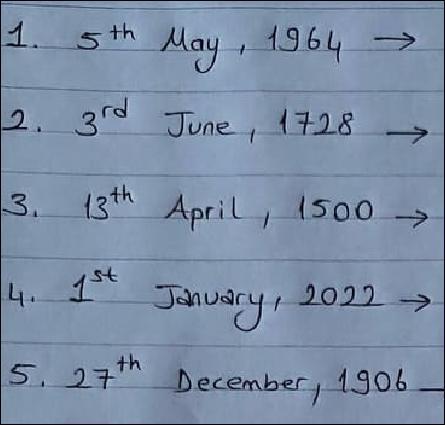 1. 5th May, 1964 →
2. 3rd June, 1728 →
3. 13th April, 1500 →
4. 1st January, 2022 →
5. 27th December, 1906 –